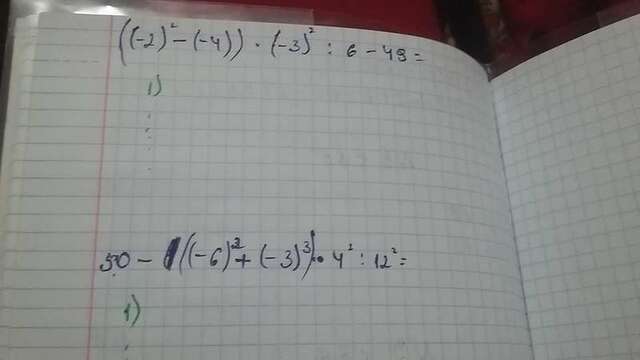 ((-2)² - (-4)) · (-3)² : 6 - 49 =
1)
50 - ((-6)² + (-3)³) · 4² : 12² =
1)